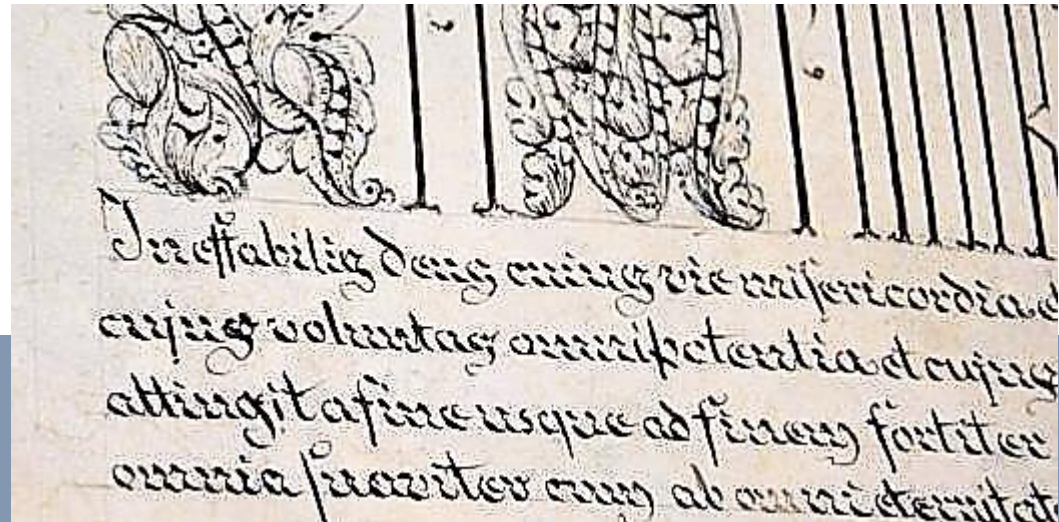 Ineffabilis Deus cuius vie misericordia e
cujus voluntas omnipotentia et cujus
attingit a fine usque ad finem fortiter
omnia suaviter cum ab omni eternitat